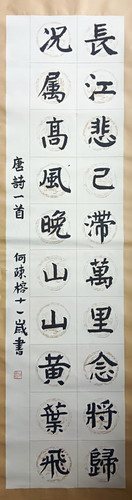 長江悲已滯萬里念將歸
况属高風晚山山黄葉飛
唐詩一首
何疎榕十一歲書